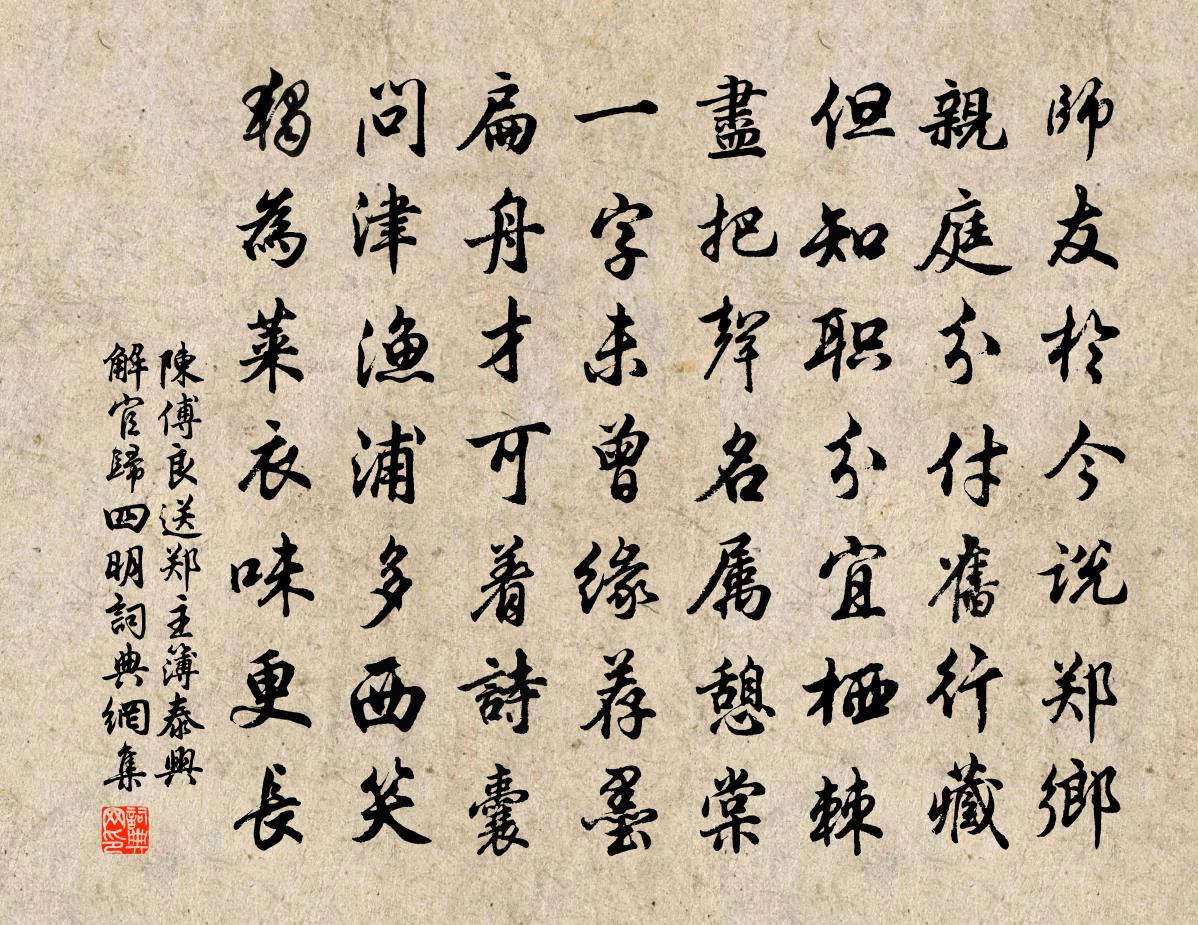 師友於今説郑鄉
親庭分付舊行藏
但知职分宜栖棘
盡把聲名属憩棠
一字未曾缘荐墨
扁舟才可着詩囊
問津漁浦多西笑
獨為菜衣味更長
陳傅良送郑主簿泰興
解官歸四明詞典網集
詞典
网印